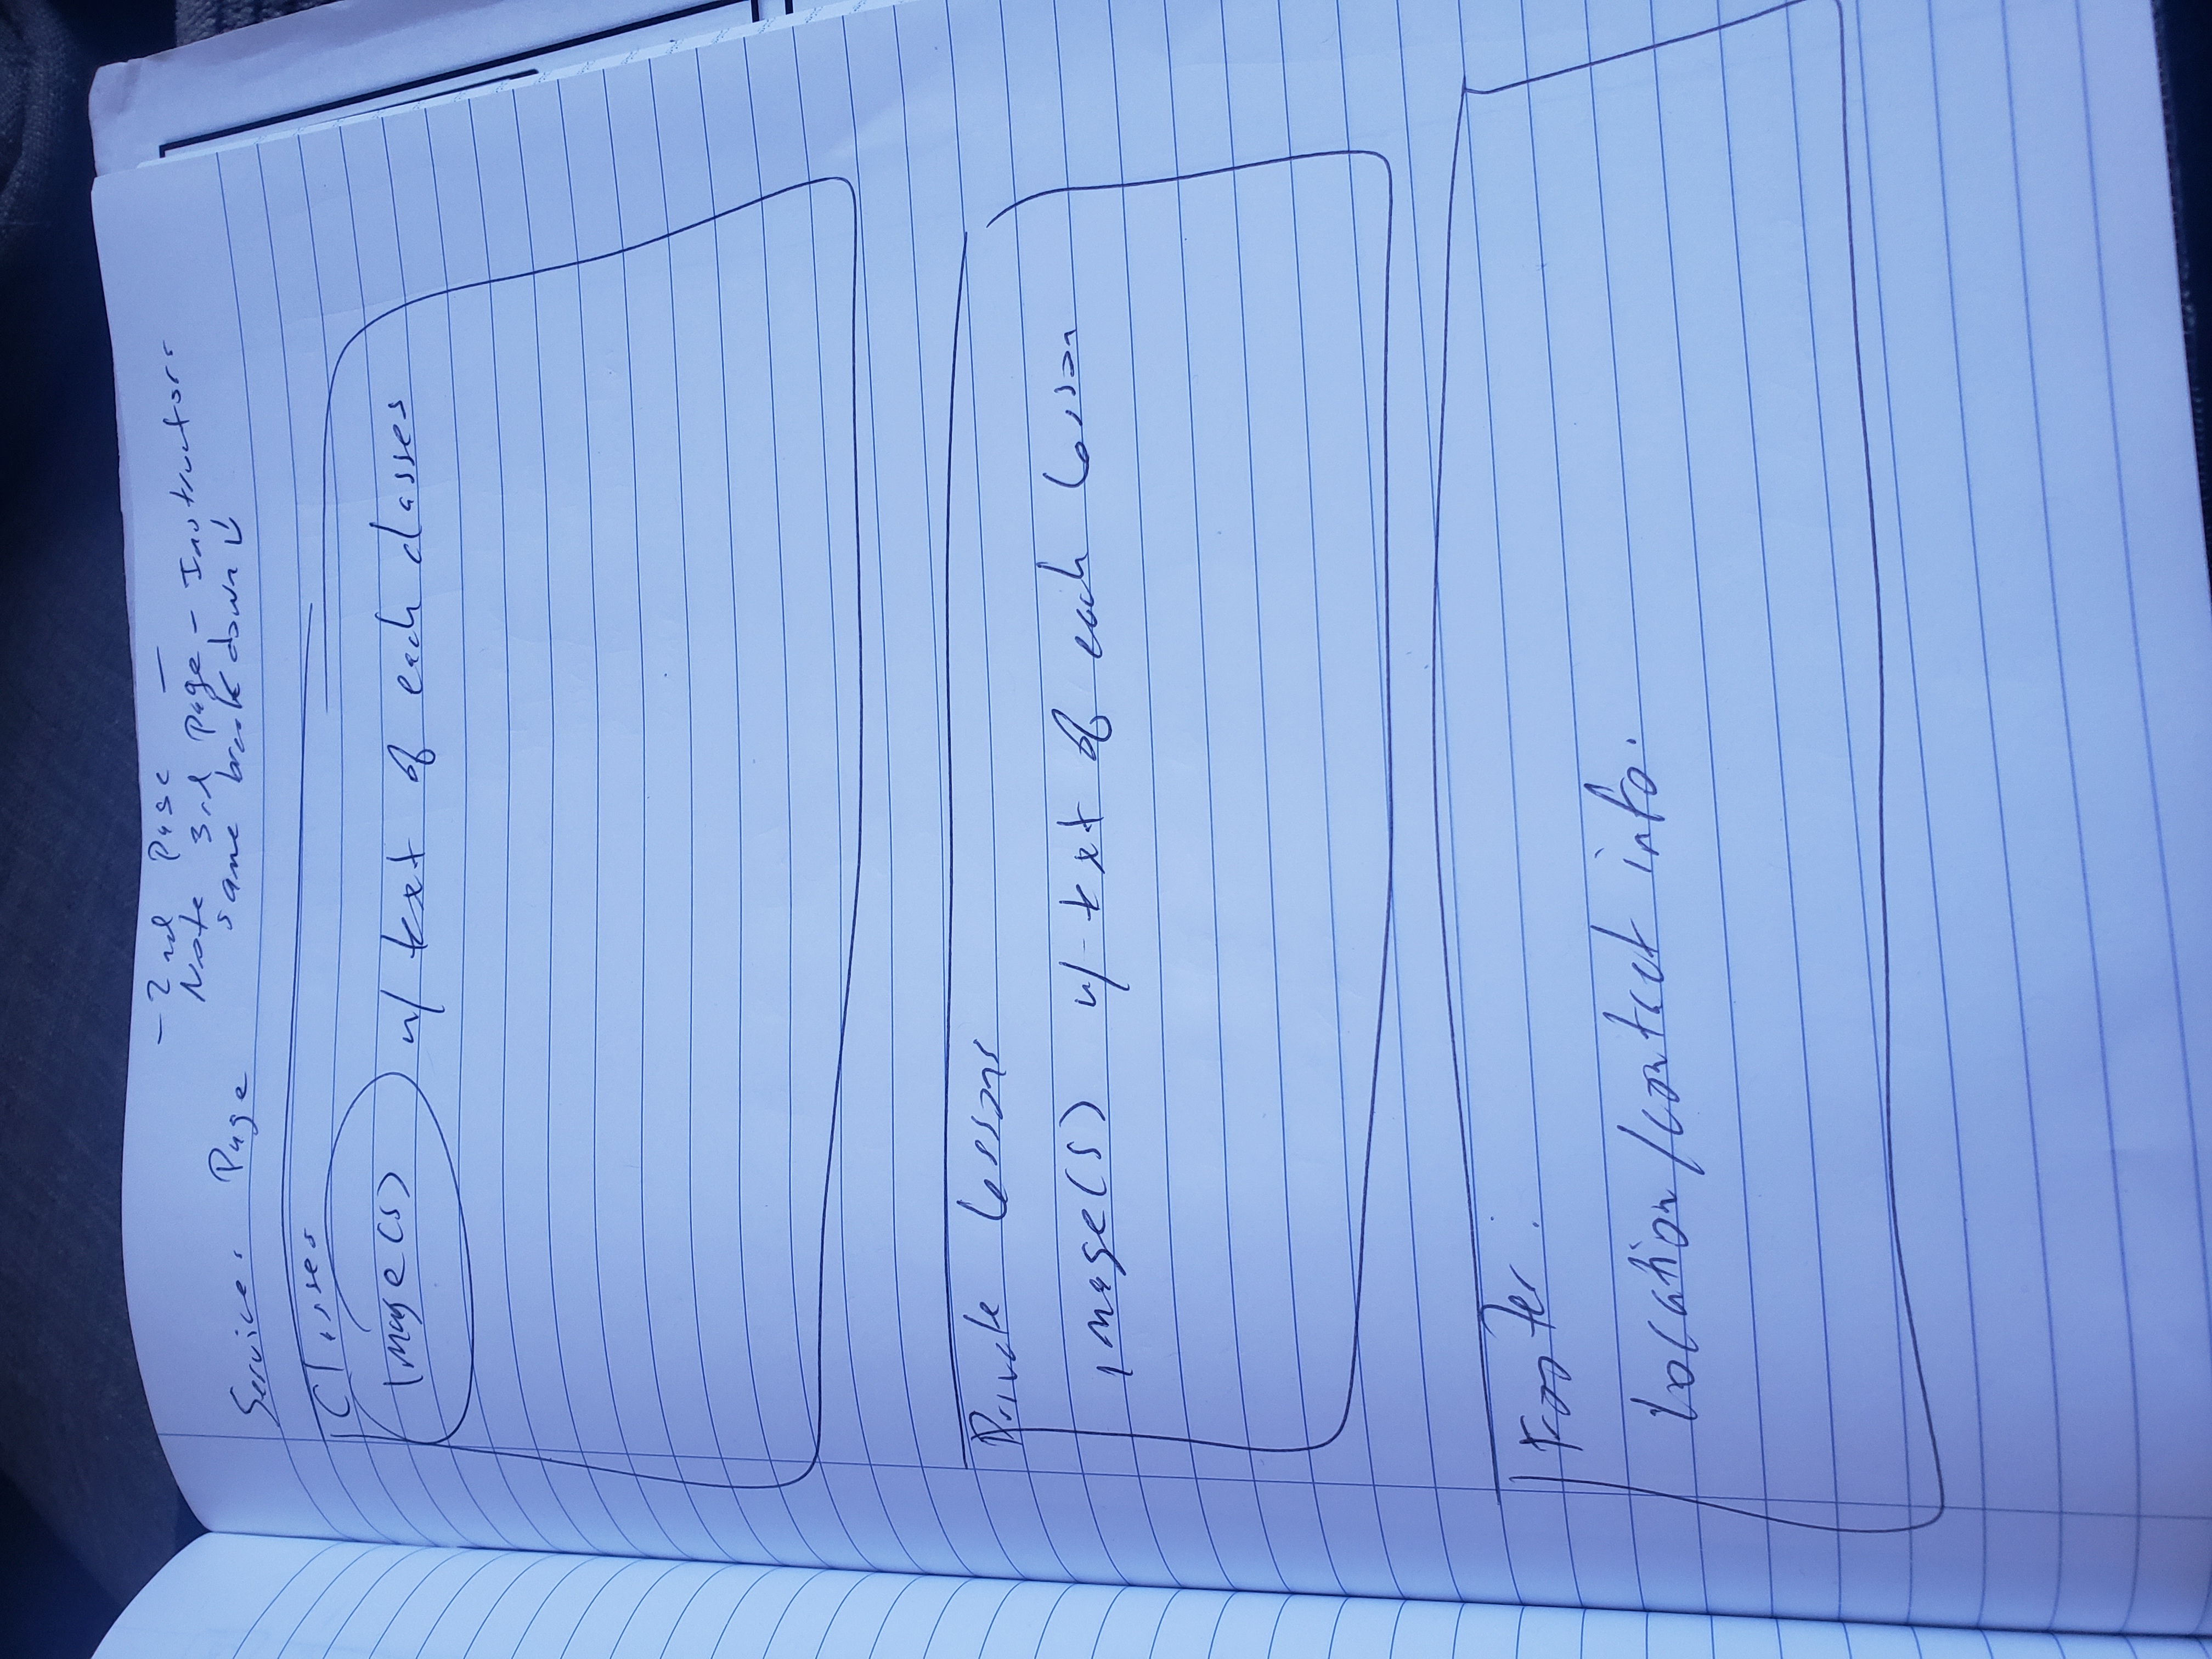 - 2nd Page -
Note 3rd Page - Instructors
same breakdown ↓
Services Page
Classes
Image(s) w/ text of each classes
Private Lessons
image(s) w/ text of each lesson
Footer:
location/contact info.